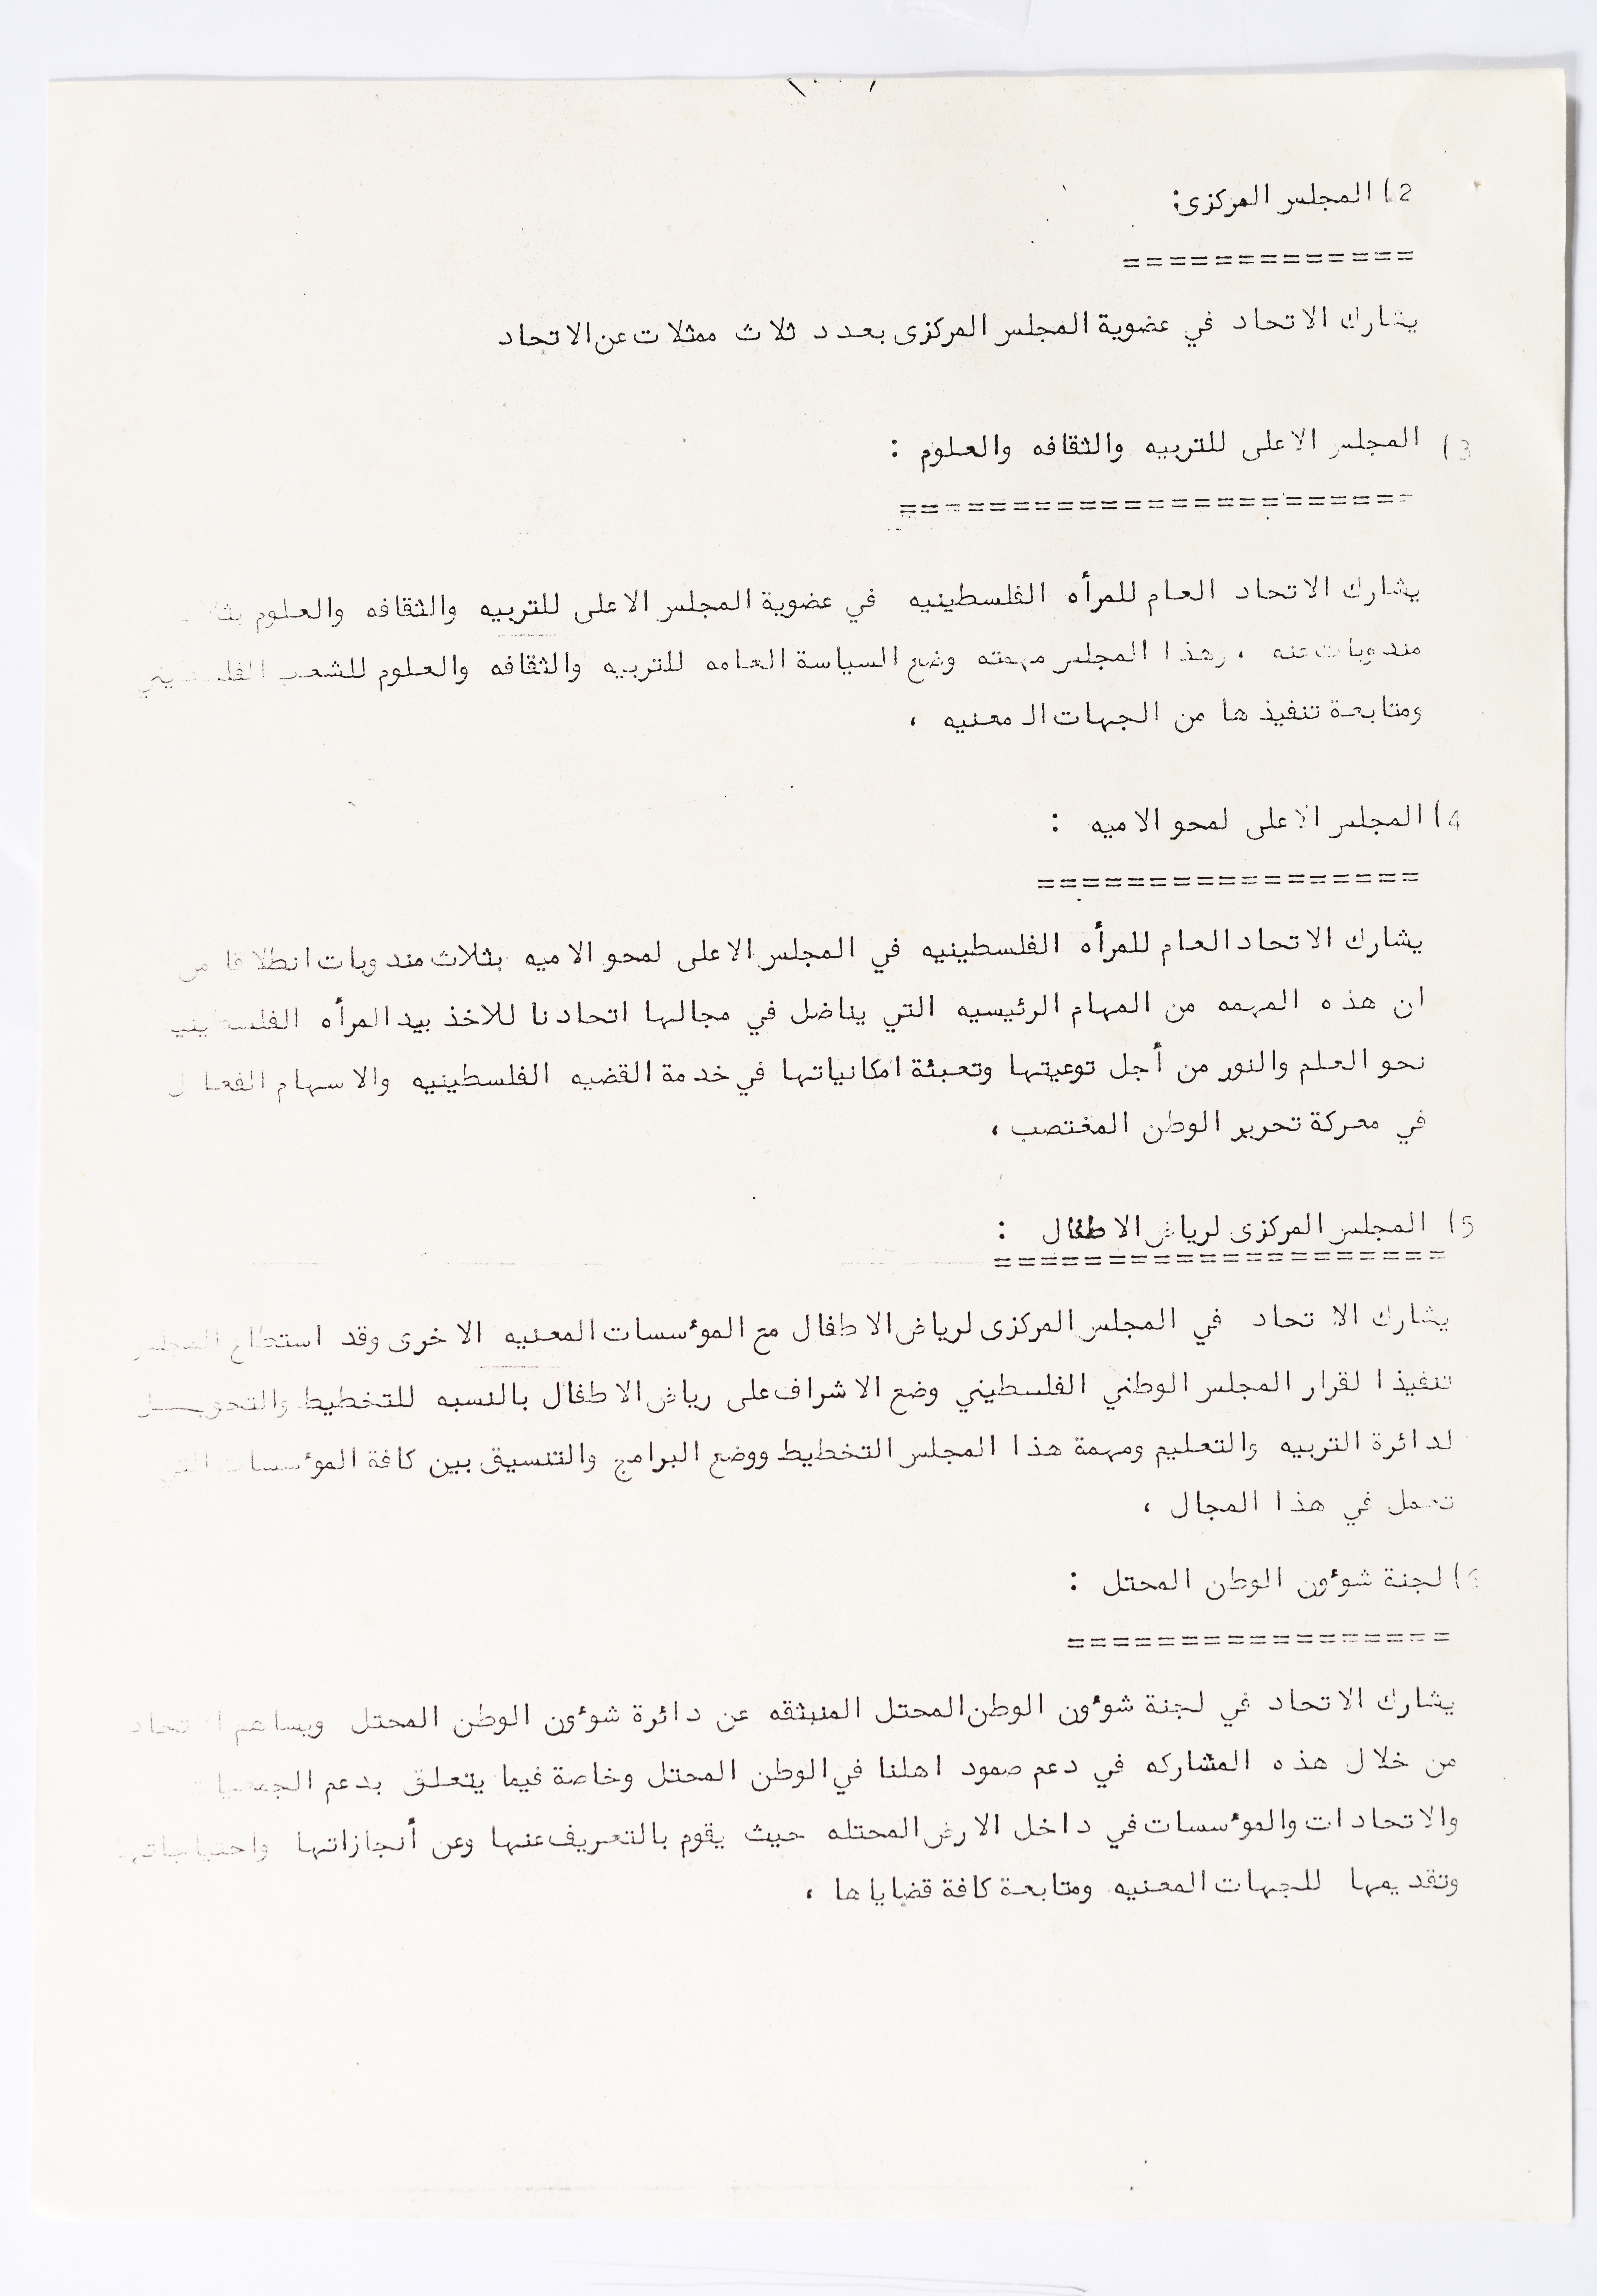 2) المجلس المركزى:
=============
يشارك الاتحاد في عضوية المجلس المركزى بعدد ثلاث ممثلات عن الاتحاد
3) المجلس الاعلى للتربيه والثقافه والعلوم :
=======================
يشارك الاتحاد العام للمرأه الفلسطينيه في عضوية المجلس الاعلى للتربيه والثقافه والعلوم
مندوبات عنه ، وهذا المجلس مهمته وضع السياسة العامه للتربيه والثقافه والعلوم للشعب الفلسطيني
ومتابعة تنفيذها من الجهات المعنيه ،
4) المجلس الاعلى لمحو الاميه :
=================
يشارك الاتحاد العام للمرأه الفلسطينيه في المجلس الاعلى لمحو الاميه بثلاث مندوبات انطلاقا من
ان هذه المهمه من المهام الرئيسيه التي يناضل في مجالها اتحادنا للاخذ بيد المرأه الفلسطينيه
نحو العلم والنور من أجل توعيتها وتعبئة امكانياتها في خدمة القضيه الفلسطينيه والاسهام الفعال
في معركة تحرير الوطن المغتصب ،
5) المجلس المركزى لرياض الاطفال :
====================
يشارك الاتحاد في المجلس المركزى لرياض الاطفال مع المؤسسات المعنيه الاخرى وقد استطاع المجلس
تنفيذا لقرار المجلس الوطني الفلسطيني وضع الاشراف على رياض الاطفال بالنسبه للتخطيط والتمويل
لدائرة التربيه والتعليم ومهمة هذا المجلس التخطيط ووضع البرامج والتنسيق بين كافة المؤسسات التي
تعمل في هذا المجال ،
6) لجنة شؤون الوطن المحتل :
=================
يشارك الاتحاد في لجنة شؤون الوطن المحتل المنبثقه عن دائرة شؤون الوطن المحتل ويساهم الاتحاد
من خلال هذه المشاركه في دعم صمود اهلنا في الوطن المحتل وخاصة فيما يتعلق بدعم الجمعيات
والاتحادات والمؤسسات في داخل الارض المحتله حيث يقوم بالتعريف عنها وعن أنجازاتها واحتياجاتها
وتقديمها للجهات المعنيه ومتابعة كافة قضاياها ،